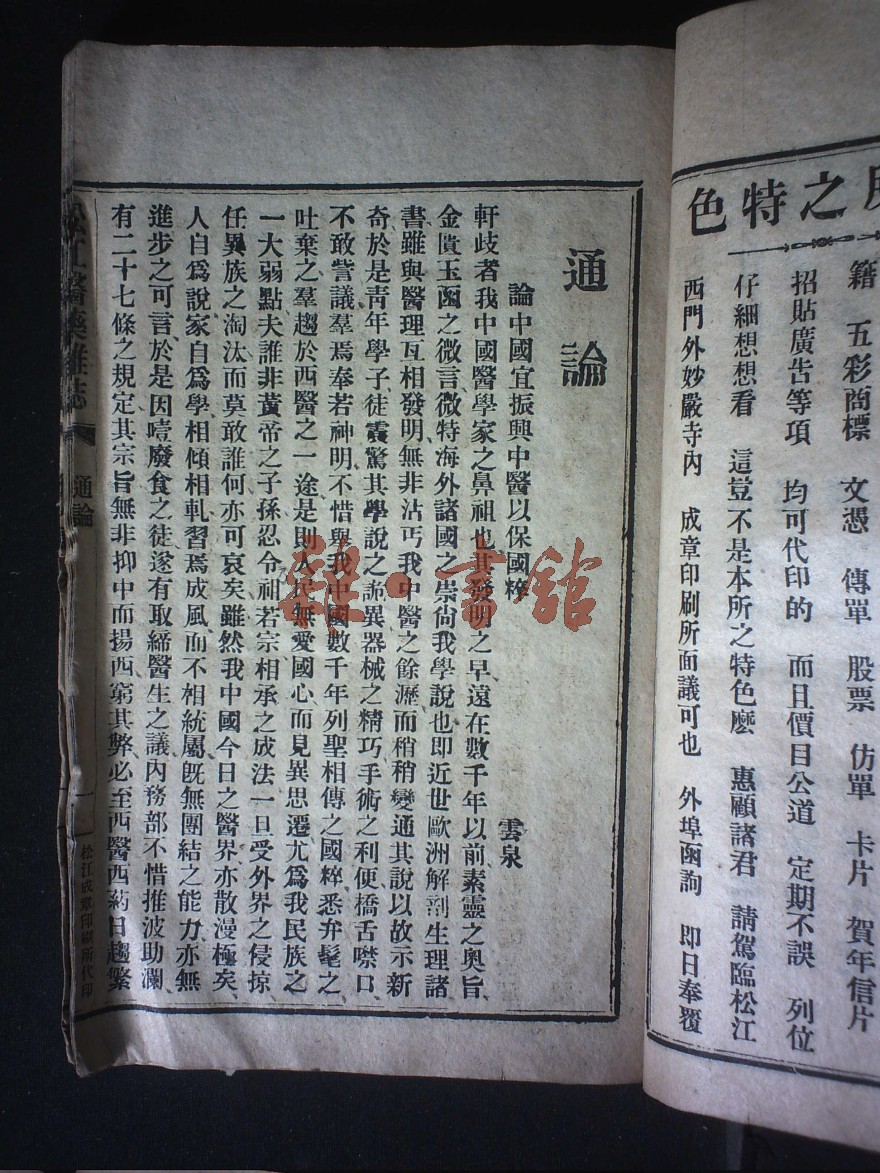 之特色
籍　五彩商標　文憑　傳單　股票　仿單　卡片　賀年信片
招貼廣告等項　均可代印的　而且價目公道　定期不誤　列位
仔細想想看　這豈不是本所之特色麽　惠顧諸君　請駕臨松江
西門外妙嚴寺內　成章印刷所面議可也　外埠函詢　即日奉覆
通論
論中國宜振興中醫以保國粹
雲泉
軒歧者我中國醫學家之鼻祖也其發明之早遠在數千年以前素靈之奧旨
金匱玉函之微言微特海外諸國之崇尙我學說也即近世歐洲解剖生理諸
書雖與醫理互相發明無非沾丐我中醫之餘瀝而稍稍變通其說以故示新
奇於是靑年學子徒震驚其學說之詭異器械之精巧手術之利便橋舌噤口
不敢訾議羣焉奉若神明不惜與我中國數千年列聖相傳之國粹悉弁髦之
吐棄之羣趨於西醫之一途是則人民無愛國心而見異思遷尤爲我民族之
一大弱點夫誰非黃帝之子孫忍令祖若宗相承之成法一旦受外界之侵掠
任異族之淘汰而莫敢誰何亦可哀矣雖然我中國今日之醫界亦散漫極矣
人自爲說家自爲學相傾相軋習焉成風而不相統屬旣無團結之能力亦無
進步之可言於是因噎廢食之徒遂有取締醫生之議內務部不惜推波助瀾
有二十七條之規定其宗旨無非抑中而揚西窮其弊必至西醫西葯日趨繁
松江醫藥雜誌
通論
一
松江成章印刷所代印
雜·書館